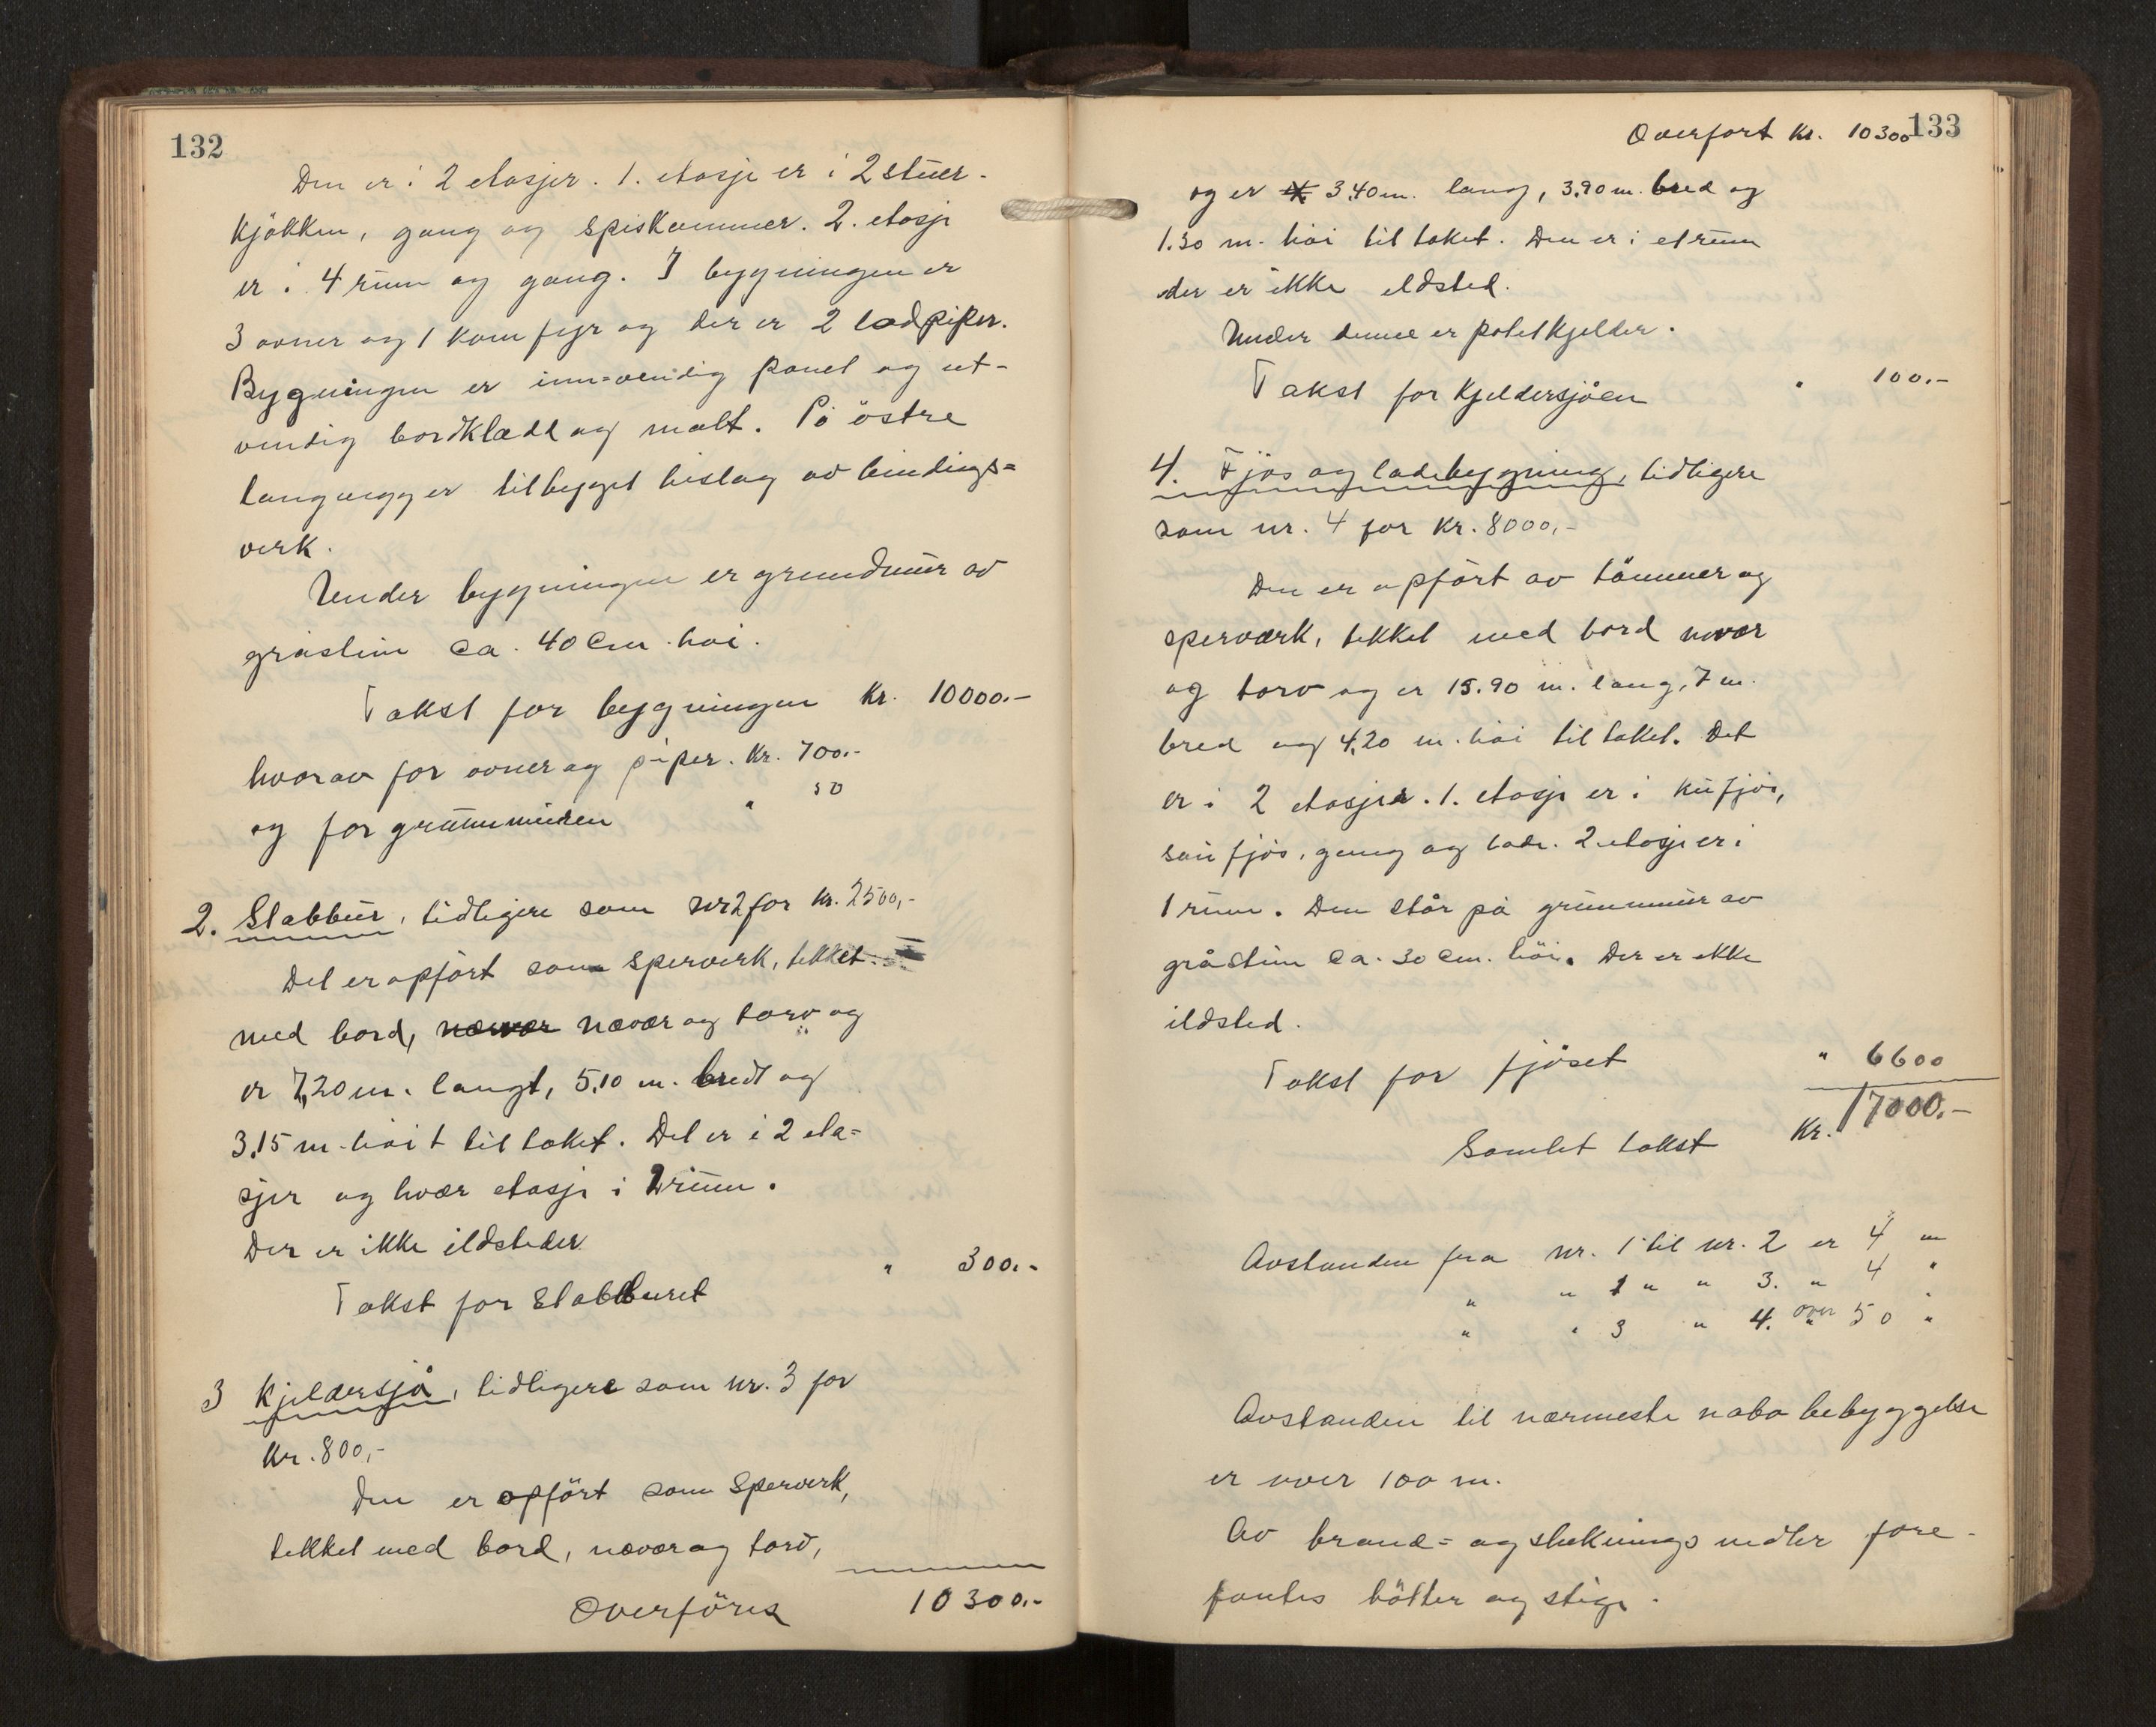 132
Den er i 2 etasjer. 1. etasje er i 2 stuer-
kjökken, gang og spiskammer. 2. etasje
er i 4 rum og gang. I bygningen er
3 ovner og 1 komfyr og der er 2 lodpiper.
Bygningen er inn=vendig panel og ut-
vendig bordkladd og malt. På östre
langvegg er tilbygget bislag av bindings=
verk.
Under bygningen er grundmur av
gråstein ca. 40 cm. höi.
Takst for bygningen Kr. 10000.-
hvorav for ovner og piper. Kr. 700.-
og for grunnmuren " 50
2. Stabbur, tidligere som nr 2 for Kr. 2500,-
Det er opfört som sperverk, tekket
med bord, nævær og torv og
er 7,20 m. langt, 5,10 m. bredt og
3,15 m. höit til taket. Det er i 2 eta=
sjer og hver etasje i 2 rum.
Der er ikke ildsteder
Takst for Stabburet " 300.-
3 Kjeldersjå, tidligere som nr. 3 for
Kr. 800,-
Den er opfört som Sperverk,
tekket med bord, nævær og torv,
Overföres 10300.-
133
Overfört Kr. 10300
og er 3,40 m. lang, 3,90 m. bred og
1.30 m. höi til taket. Den er i et rum
der er ikke eldsted.
Under denne er potetkjelder.
Takst for Kjeldersjåen " 100.-
4. Fjös og ladebygning, tidligere
som nr. 4 for Kr. 8000,-
Den er opfört av tömmer og
sperværk, tekket med bord nævær
og torv og er 15.90 m. lang, 7 m.
bred og 4,20 m. höi til taket. Det
er i 2 etasjer. 1. etasje er i kufjös,
saufjös, gang og lade. 2. etasje er i
1 rum. Den står på grunnmur av
gråstein ca. 30 cm. höi. Der er ikke
ildsted.
Takst for fjöset " 6600
Samlet takst Kr. 17000.-
Avstanden fra nr. 1 til nr. 2 er 4 m
" " 1 " " 3. " 4 "
" " 3 " 4. over 50 "
Avstanden til nærmeste nabobebyggelse
er over 100 m.
Av brand= og slukningsmidler fore-
fantes bötter og stige.